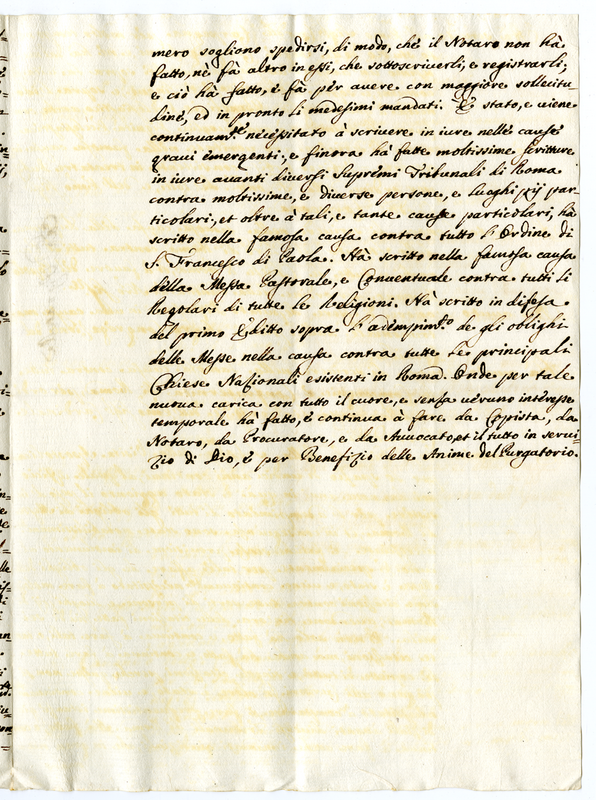 mero sogliono spedirsi, di modo, che il Notaro non hà
fatto, nè fà altro in essi, che sottoscriverli, e registrarli;
e ciò hà fatto, e fà per avere con maggiore sollecitu-
dine, ed in pronto li medesimi mandati. È stato, e viene
continuam.te necessitato à scrivere in iure nelle cause
gravi emergenti, e finora hà fatte moltissime scritture
in iure avanti diversi supremi Tribunali di Roma
contra moltissime, e diverse persone, e luoghi pij par-
ticolari, et oltre à tali, e tante cause particolari, hà
scritto nella famosa causa contra tutto l'Ordine di
S. Francesco di Paola. Hà scritto nella famosa causa
della Messa Pastorale, e Conventuale contra tutti li
Regolari di tutte le Religioni. Hà scritto in difesa
del primo Editto sopra l'adempim.to de gli oblighi
delle Messe nella causa contra tutte le principali
Chiese Nazionali esistenti in Roma. Onde per tale
nuova carica con tutto il cuore, e senza veruno interesse
temporale hà fatto, e continua à fare da Copista, da
Notaro, da Procuratore, e da Avvocato, et il tutto in servi-
zio di Dio, e per Benefizio delle Anime del Purgatorio.